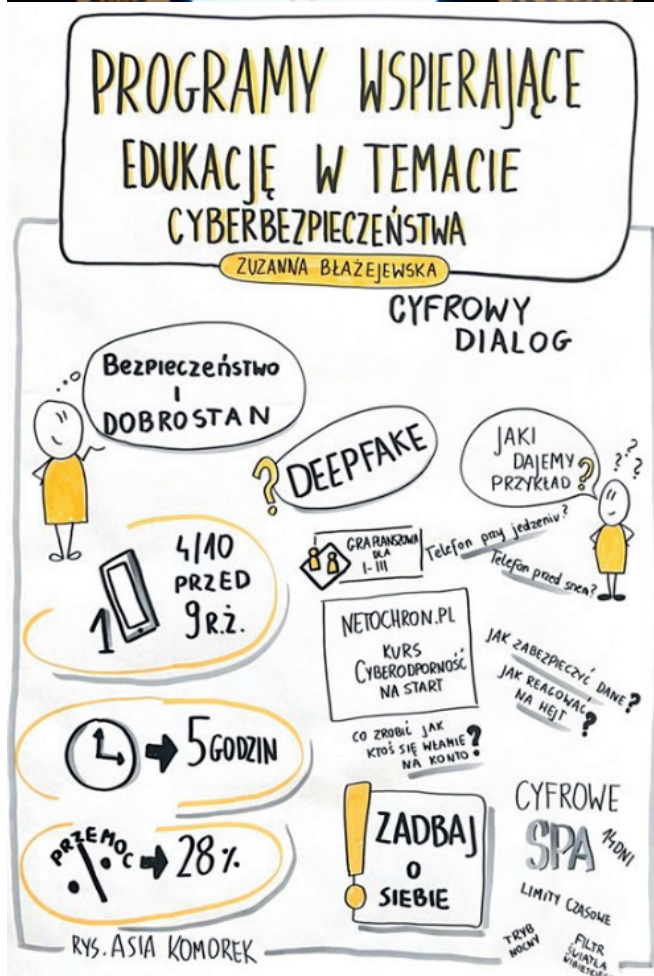 PROGRAMY WSPIERAJĄCE
EDUKACJĘ W TEMACIE
CYBERBEZPIECZEŃSTWA
ZUZANNA BŁAŻEJEWSKA
CYFROWY
DIALOG
BEZPIECZEŃSTWO
I
DOBROSTAN
? DEEPFAKE
JAKI
DAJEMY
PRZYKŁAD?
???
1
4/10
PRZED
9 R.Ż.
GRA PLANSZOWA
DLA
I-III
Telefon przy jedzeniu?
Telefon przed snem?
NETOCHRON.PL
KURS
CYBERODPORNOŚĆ
NA START
JAK ZABEZPIECZYĆ DANE?
JAK REAGOWAĆ
NA HEJT?
CO ZROBIĆ JAK
KTOŚ SIĘ WŁAMIE
NA KONTO?
5 GODZIN
PRZEMOC
% 28%
! ZADBAJ
O
SIEBIE
CYFROWE
SPA 14 DNI
LIMITY CZASOWE
TRYB
NOCNY
FILTR
ŚWIATŁA
RYS. ASIA KOMOREK